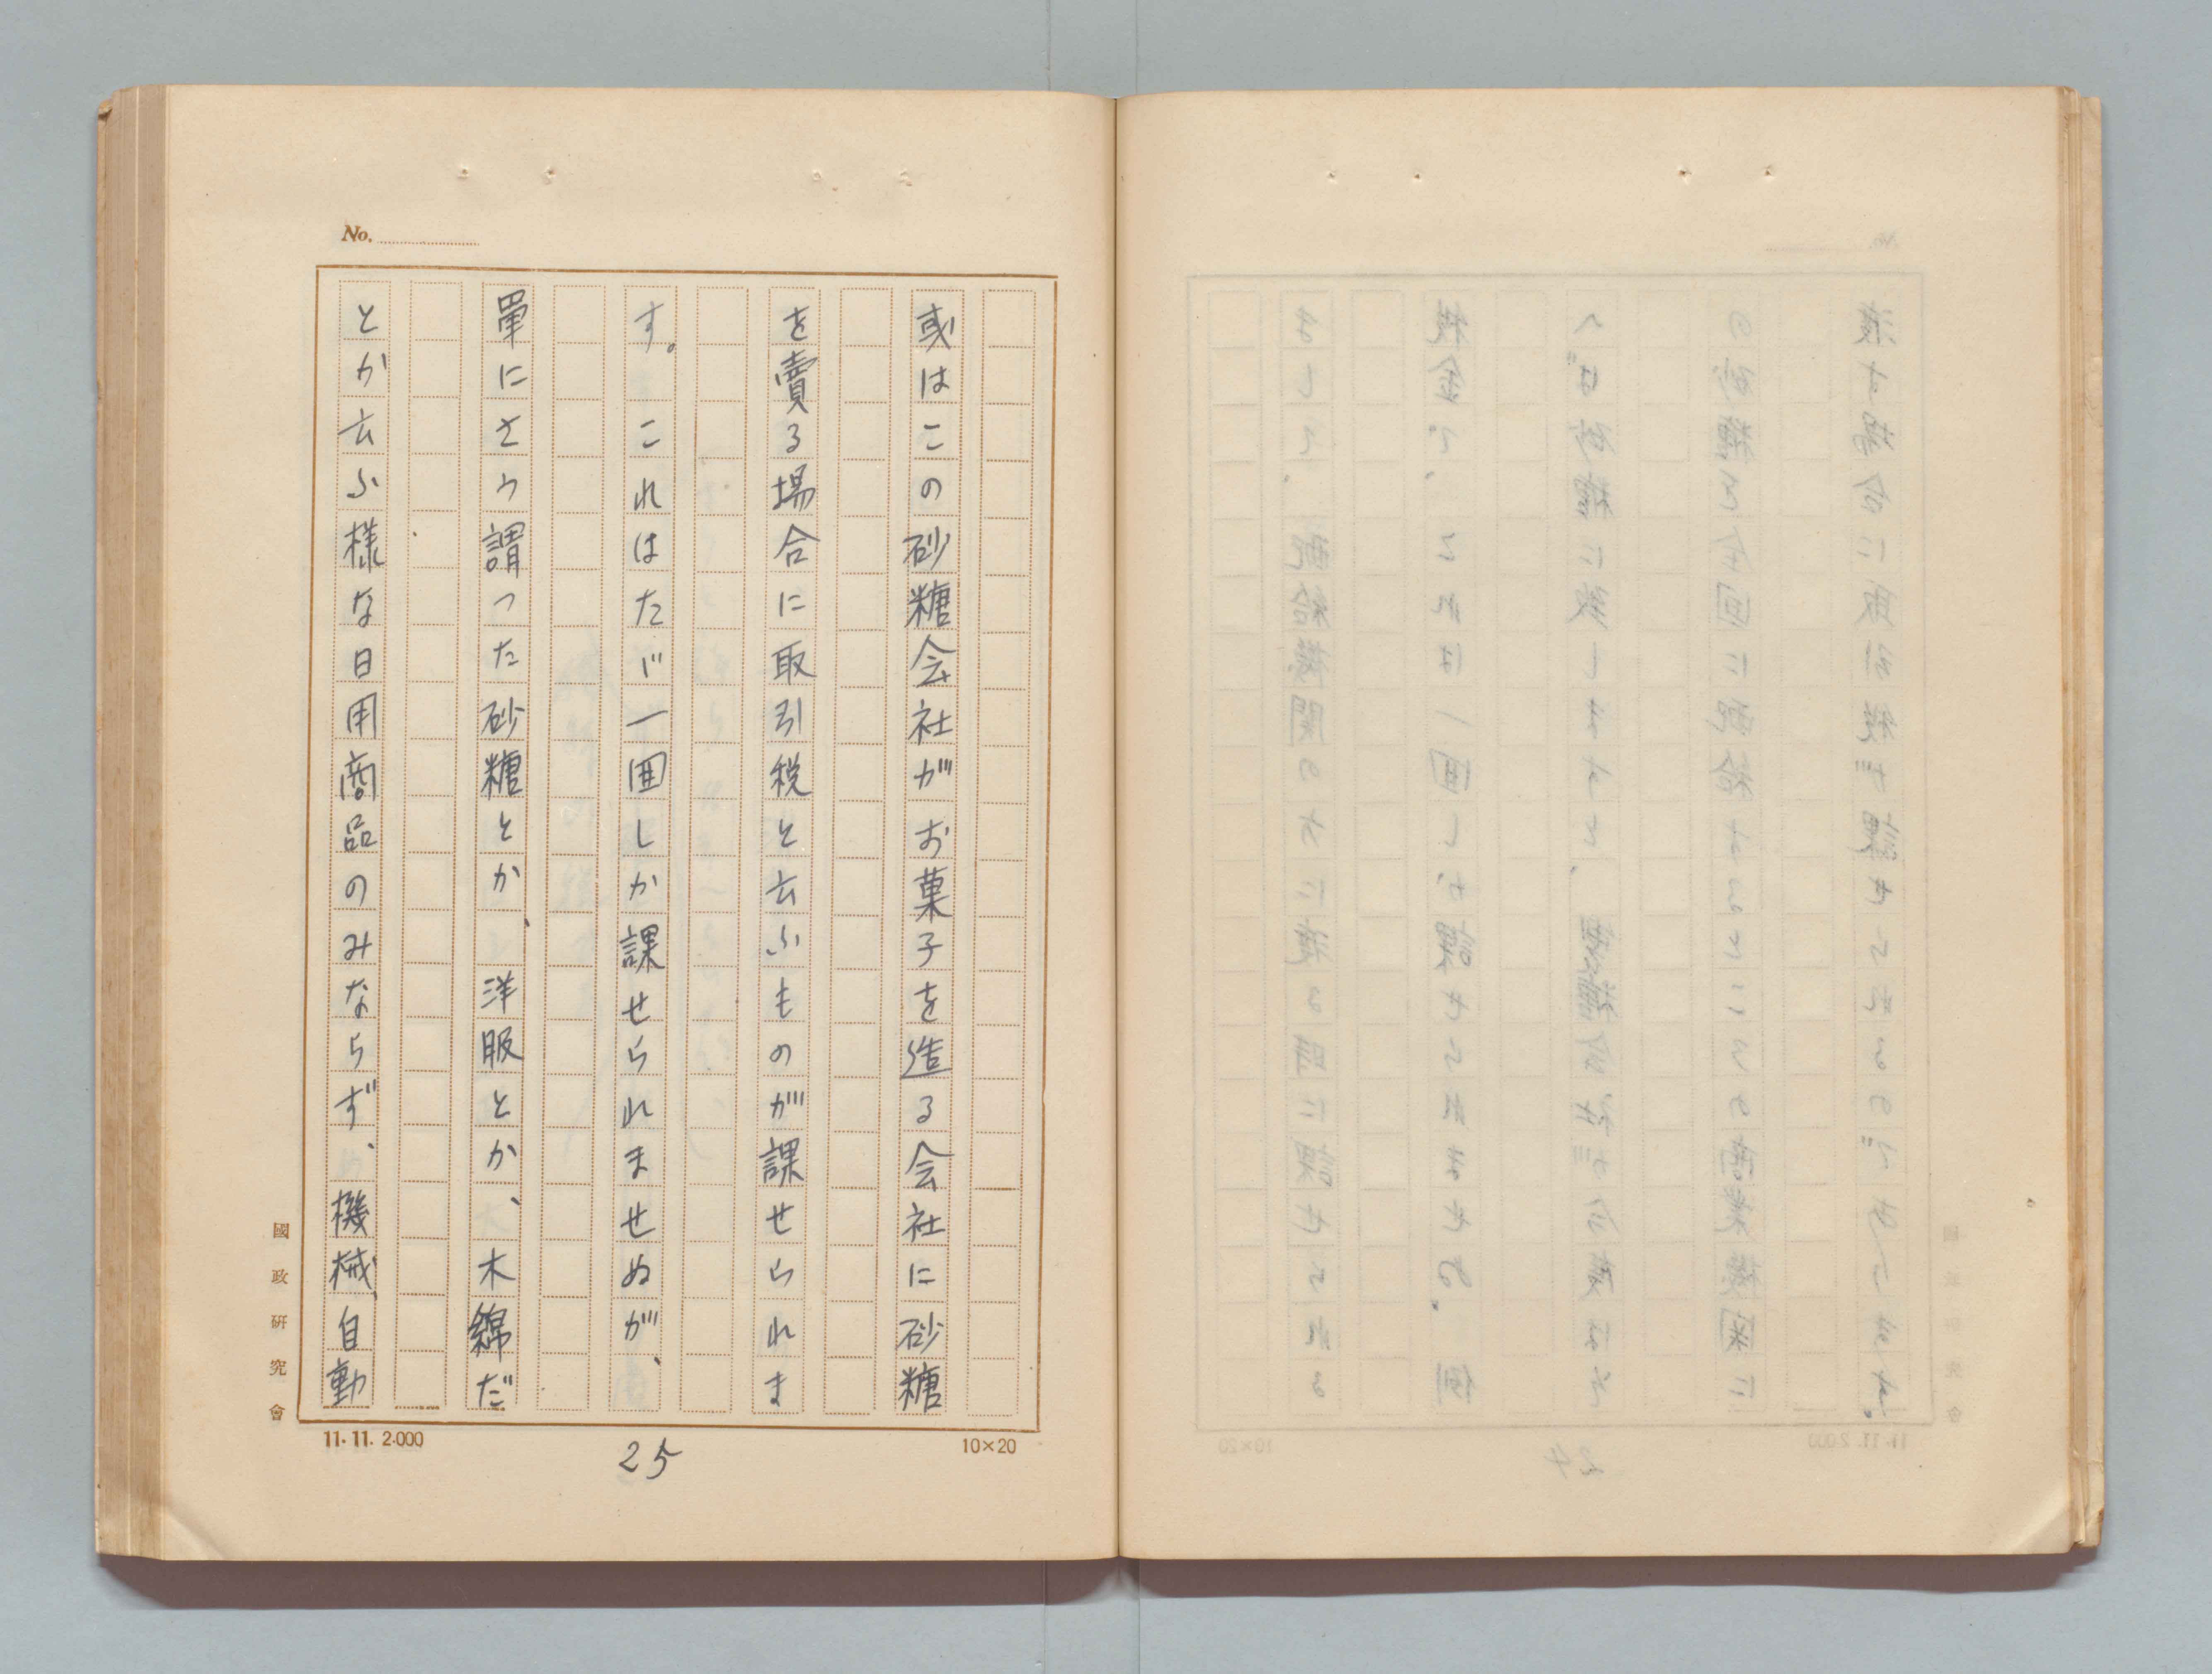 No.
或はこの砂糖会社がお菓子を造る会社に砂糖
を賣る場合に取引税と云ふものが課せられま
す。これはたゞ一囬しか課せられませぬが、
單にさう謂った砂糖とか、洋服とか、木綿だ
とか云ふ様な日用商品のみならず、機械、自動
國政研究會
11.11. 2.000
25
10×20